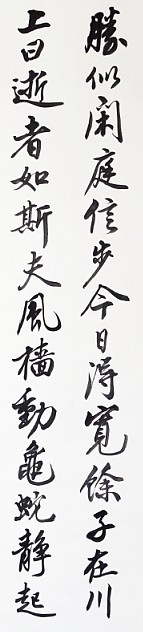 勝似閑庭信步今日得寬餘子在川
上曰逝者如斯夫風檣動龜蛇靜起